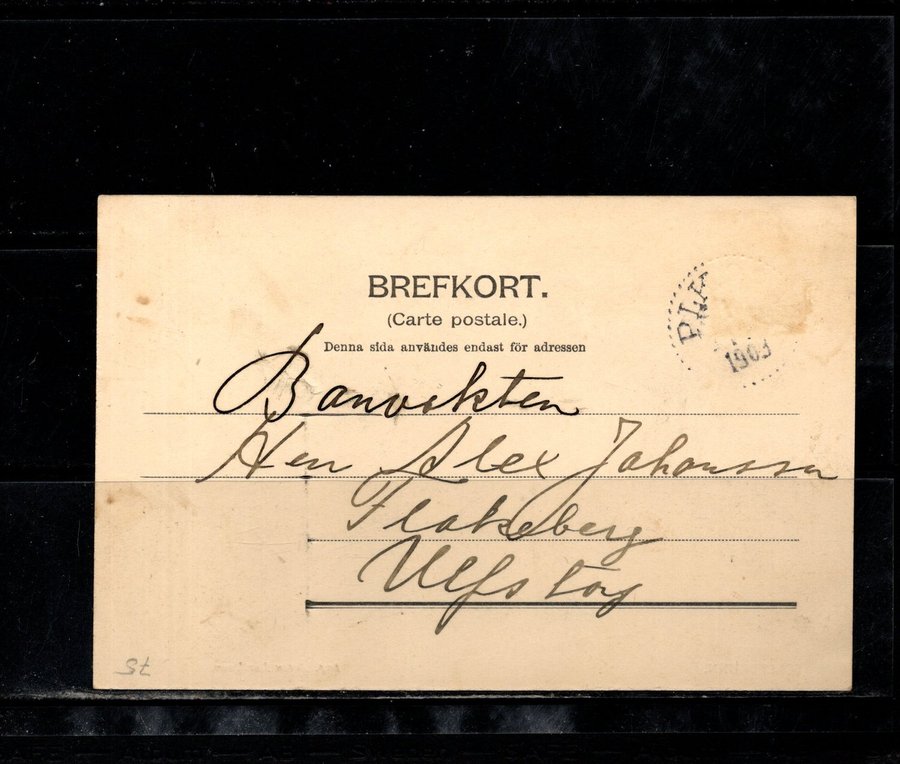 BREFKORT.
(Carte postale.)
Denna sida användes endast för adressen
PLA
1903
Banvakten
Herr Alex Johansson
Flakeberg
Ulfstorp
75